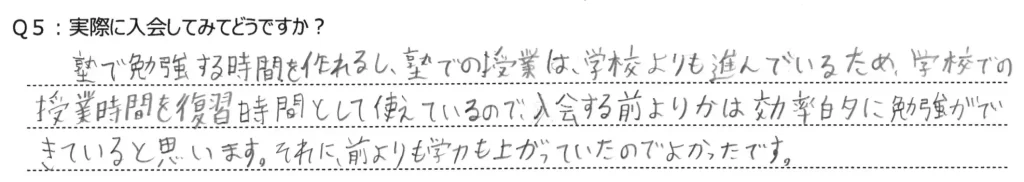 Q5：実際に入会してみてどうですか？
塾で勉強する時間を作れるし、塾での授業は、学校よりも進んでいるため、学校での
授業時間を復習時間として使えているので、入会する前よりかは効率的に勉強がで
きていると思います。それに、前よりも学力も上がっていたのでよかったです。